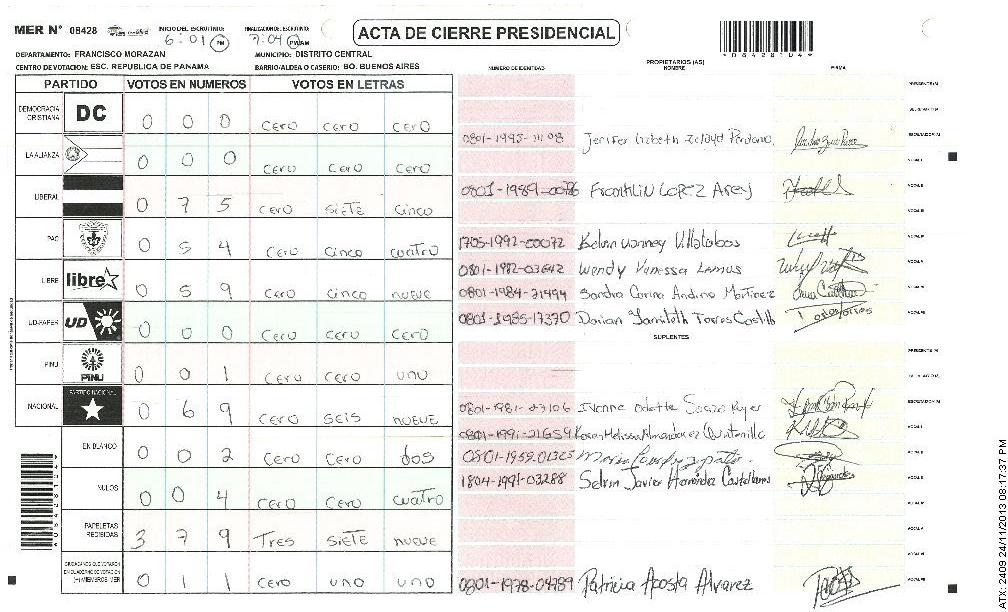 MER N° 08428 INICIO DEL ESCRUTINIO: 6:01 PM FINALIZACION DE ESCRUTINIO: 7:04 PM/AM ACTA DE CIERRE PRESIDENCIAL
*08428104*
DEPARTAMENTO: FRANCISCO MORAZAN MUNICIPIO: DISTRITO CENTRAL
CENTRO DE VOTACION: ESC. REPUBLICA DE PANAMA BARRIO/ALDEA O CASERIO: BO. BUENOS AIRES
NUMERO DE IDENTIDAD PROPIETARIOS (AS) NOMBRE FIRMA
PARTIDO VOTOS EN NUMEROS VOTOS EN LETRAS
DEMOCRACIA CRISTIANA DC 0 0 0 cero cero cero
LA ALIANZA 0 0 0 cero cero cero
LIBERAL 0 7 5 cero siete cinco
PAC 0 5 4 cero cinco cuatro
LIBRE libre 0 5 9 cero cinco nueve
UD-FAPER UD 0 0 0 cero cero cero
PINU PINU 0 0 1 cero cero uno
NACIONAL PARTIDO NACIONAL 0 6 9 cero seis nueve
EN BLANCO 0 0 2 cero cero dos
NULOS 0 0 4 cero cero cuatro
PAPELETAS RECIBIDAS 3 7 9 Tres siete nueve
CIUDADANOS QUE VOTARON EN CUADERNO DE VOTACION (+) MIEMBROS MER 0 1 1 cero uno uno
Jenifer Lizbeth
0801-1989-0076 Franklin Lopez
1705-1992-00072 Villalobos
0801-1982-03642 Wendy Vanessa Lamus
0801-1984-21494 Sandra Carina Andino Martinez
0801-1985-17370 Darian Torres
SUPLENTES
0801-1981-23106 Ivonne Odette
0801-1991-21659 Karen Melissa
0801-1959-01325
1804-1991-03288 Selvin Javier Hernandez Castellanos
0801-1978-04789 Patricia Acosta Alvarez
ATX 2409 24/11/2013 08:17:37 PM